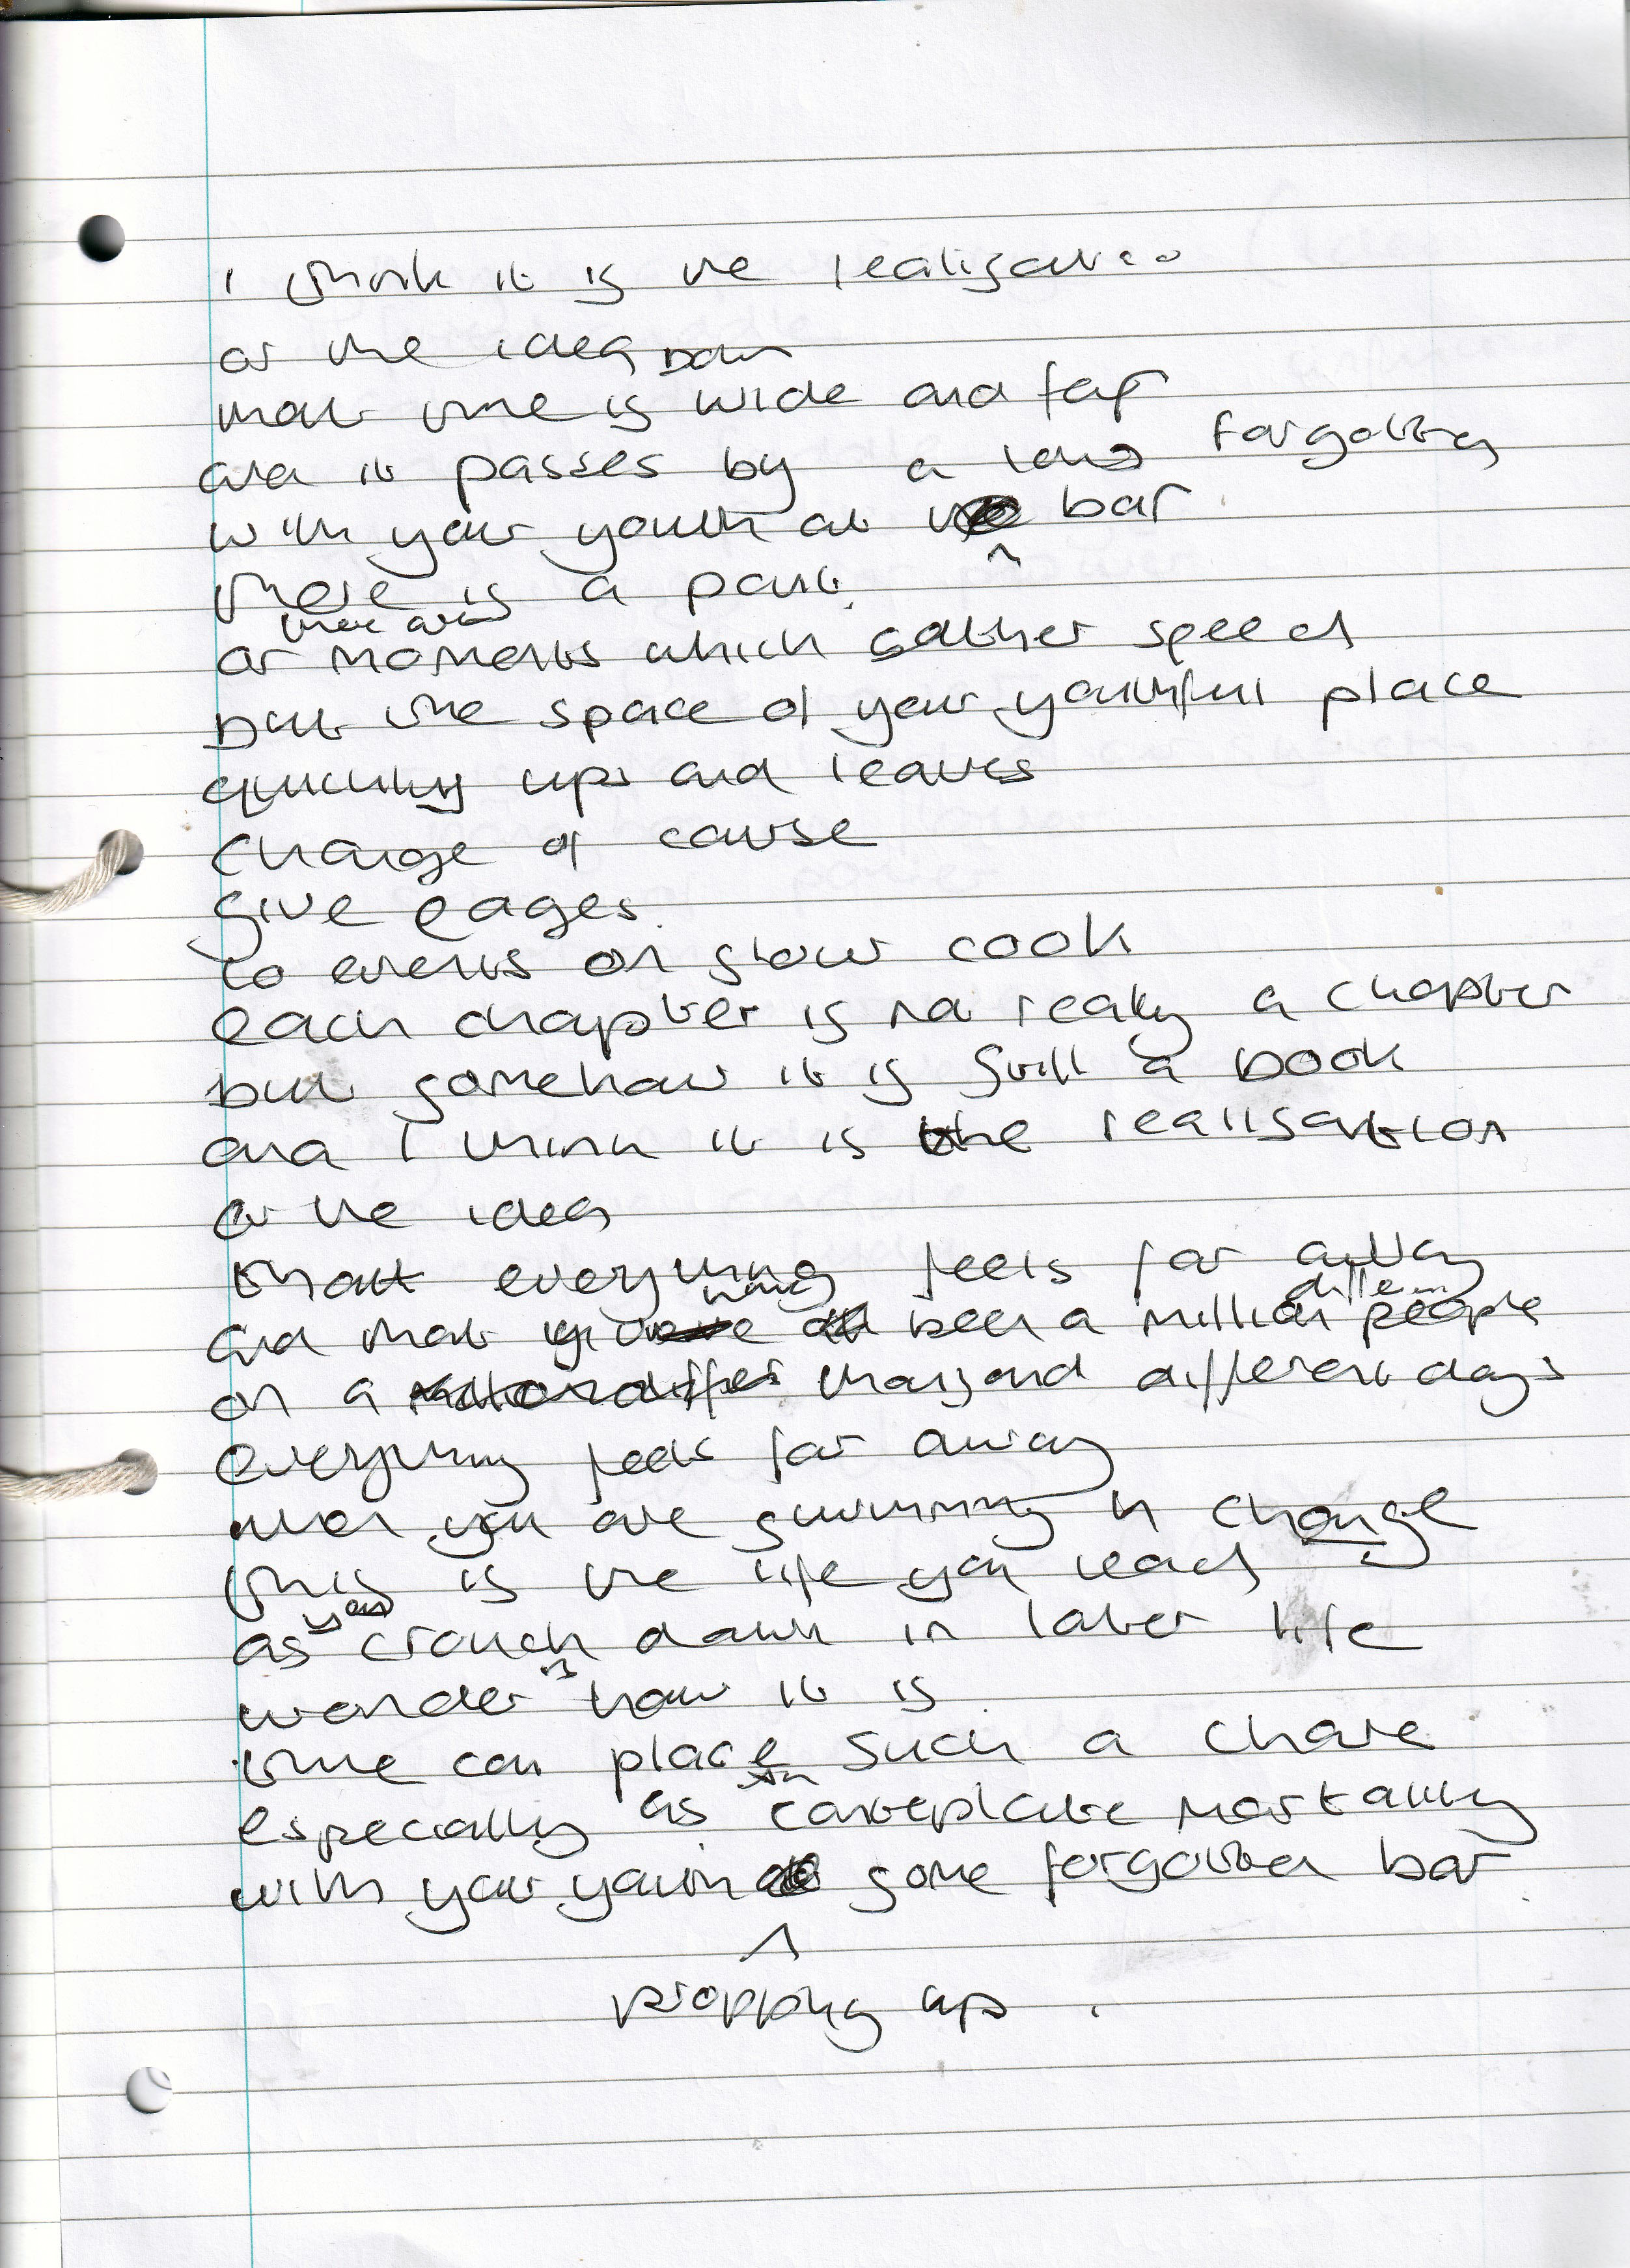 i think it is the realisation
or the idea
that time is wide and far
and it passes by a long forgotten
with your youth at bar
there is a point
there are
or moments which gather speed
but the space of your youthful place
quickly ups and leaves
change of course
give eages
to events on slow cook
each chapter is not really a chapter
but somehow it is still a book
and I think it is the realisation
or the idea
that everything feels far away
and that you been a million different people
on a thousand different days
everything feels far away
when you are swimming in change
this is the life you lead
as you crouch down in later life
wonder how it is
time can place such a chare
especially as conteplate mortality
with your youth some forgotten bar
propping up .